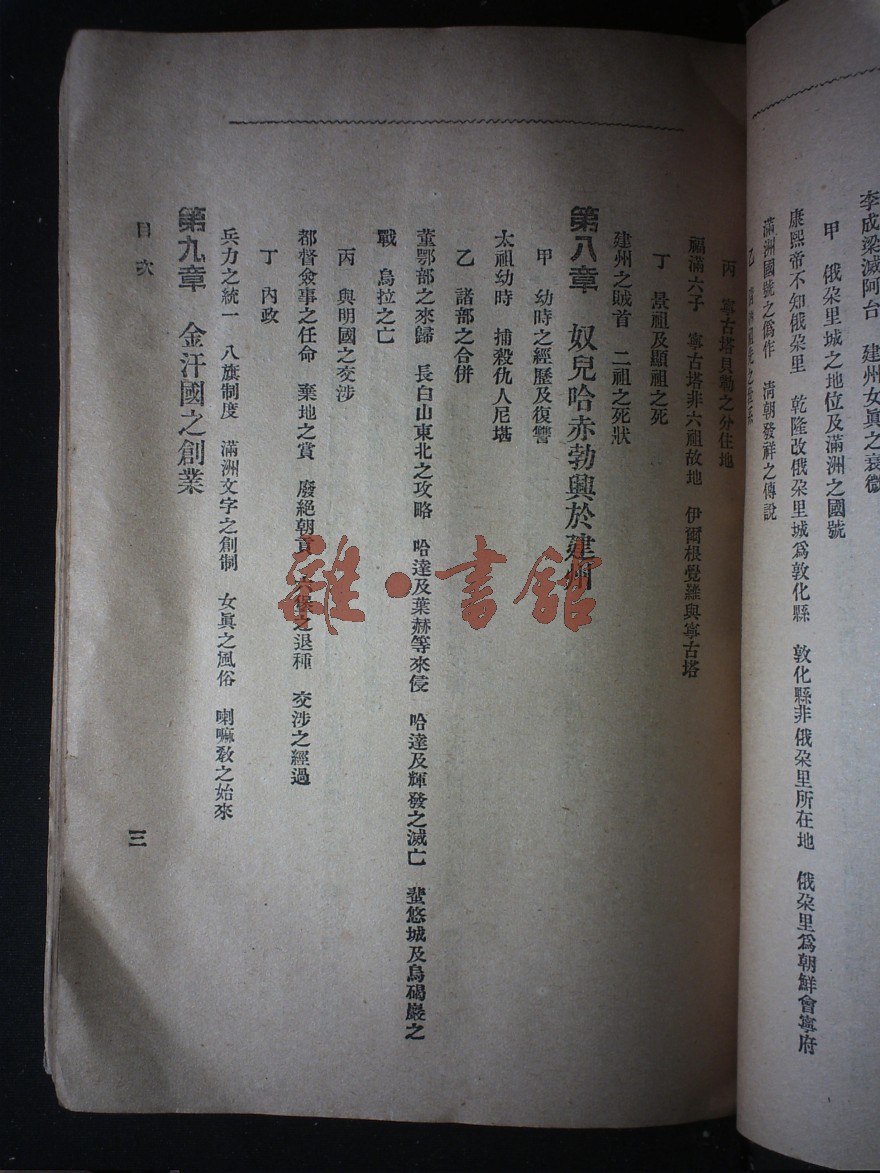 李成梁滅阿台　建州女眞之衰微
甲　俄朶里城之地位及滿洲之國號
康熙帝不知俄朶里　乾隆改俄朶里城爲敦化縣　敦化縣非俄朶里所在地　俄朶里爲朝鮮會寧府
滿洲國號之僞作　淸朝發祥之傳說
乙
丙　寧古塔貝勒之分住地
福滿六子　寧古塔非六祖故地　伊爾根覺羅與寧古塔
丁　景祖及顯祖之死
建州之賊首　二祖之死狀
第八章　奴兒哈赤勃興於建州
甲　幼時之經歷及復讐
太祖幼時　捕殺仇人尼堪
乙　諸部之合併
董鄂部之來歸　長白山東北之攻略　哈達及葉赫等來侵　哈達及輝發之滅亡　蜚悠城及烏碣巖之
戰　烏拉之亡
丙　與明國之交涉
都督僉事之任命　棄地之賞　廢絕朝貢　六堡之退種　交涉之經過
丁　內政
兵力之統一　八旗制度　滿洲文字之創制　女眞之風俗　喇嘛敎之始來
第九章　金汗國之創業
目次
三
雜·書館